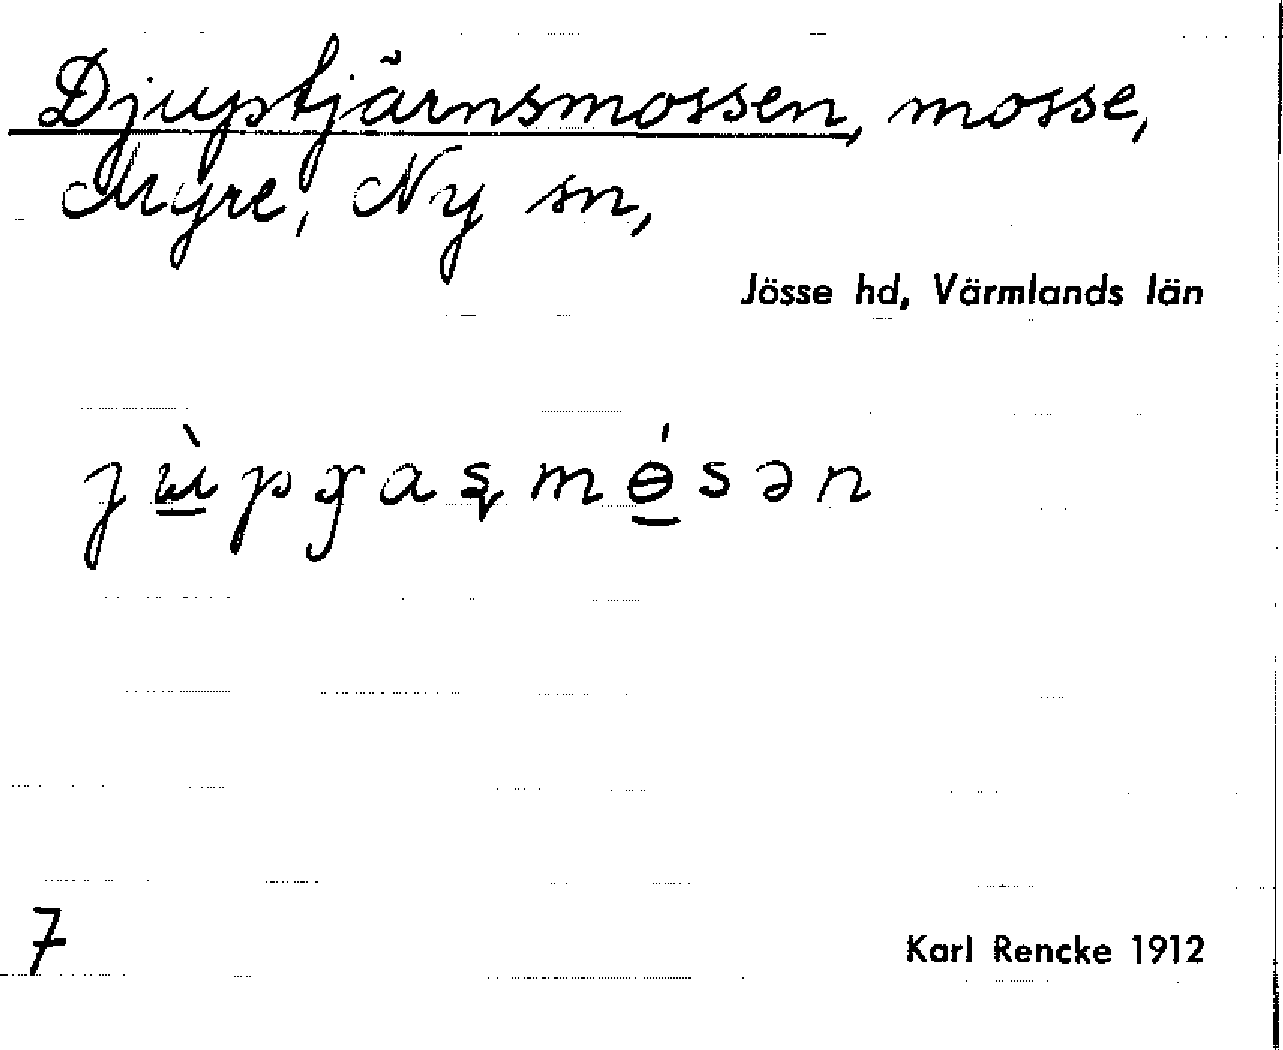 Djuptjärnsmossen, mosse,
Myre, Ny sn,
Jösse hd, Värmlands län
7
Karl Rencke 1912